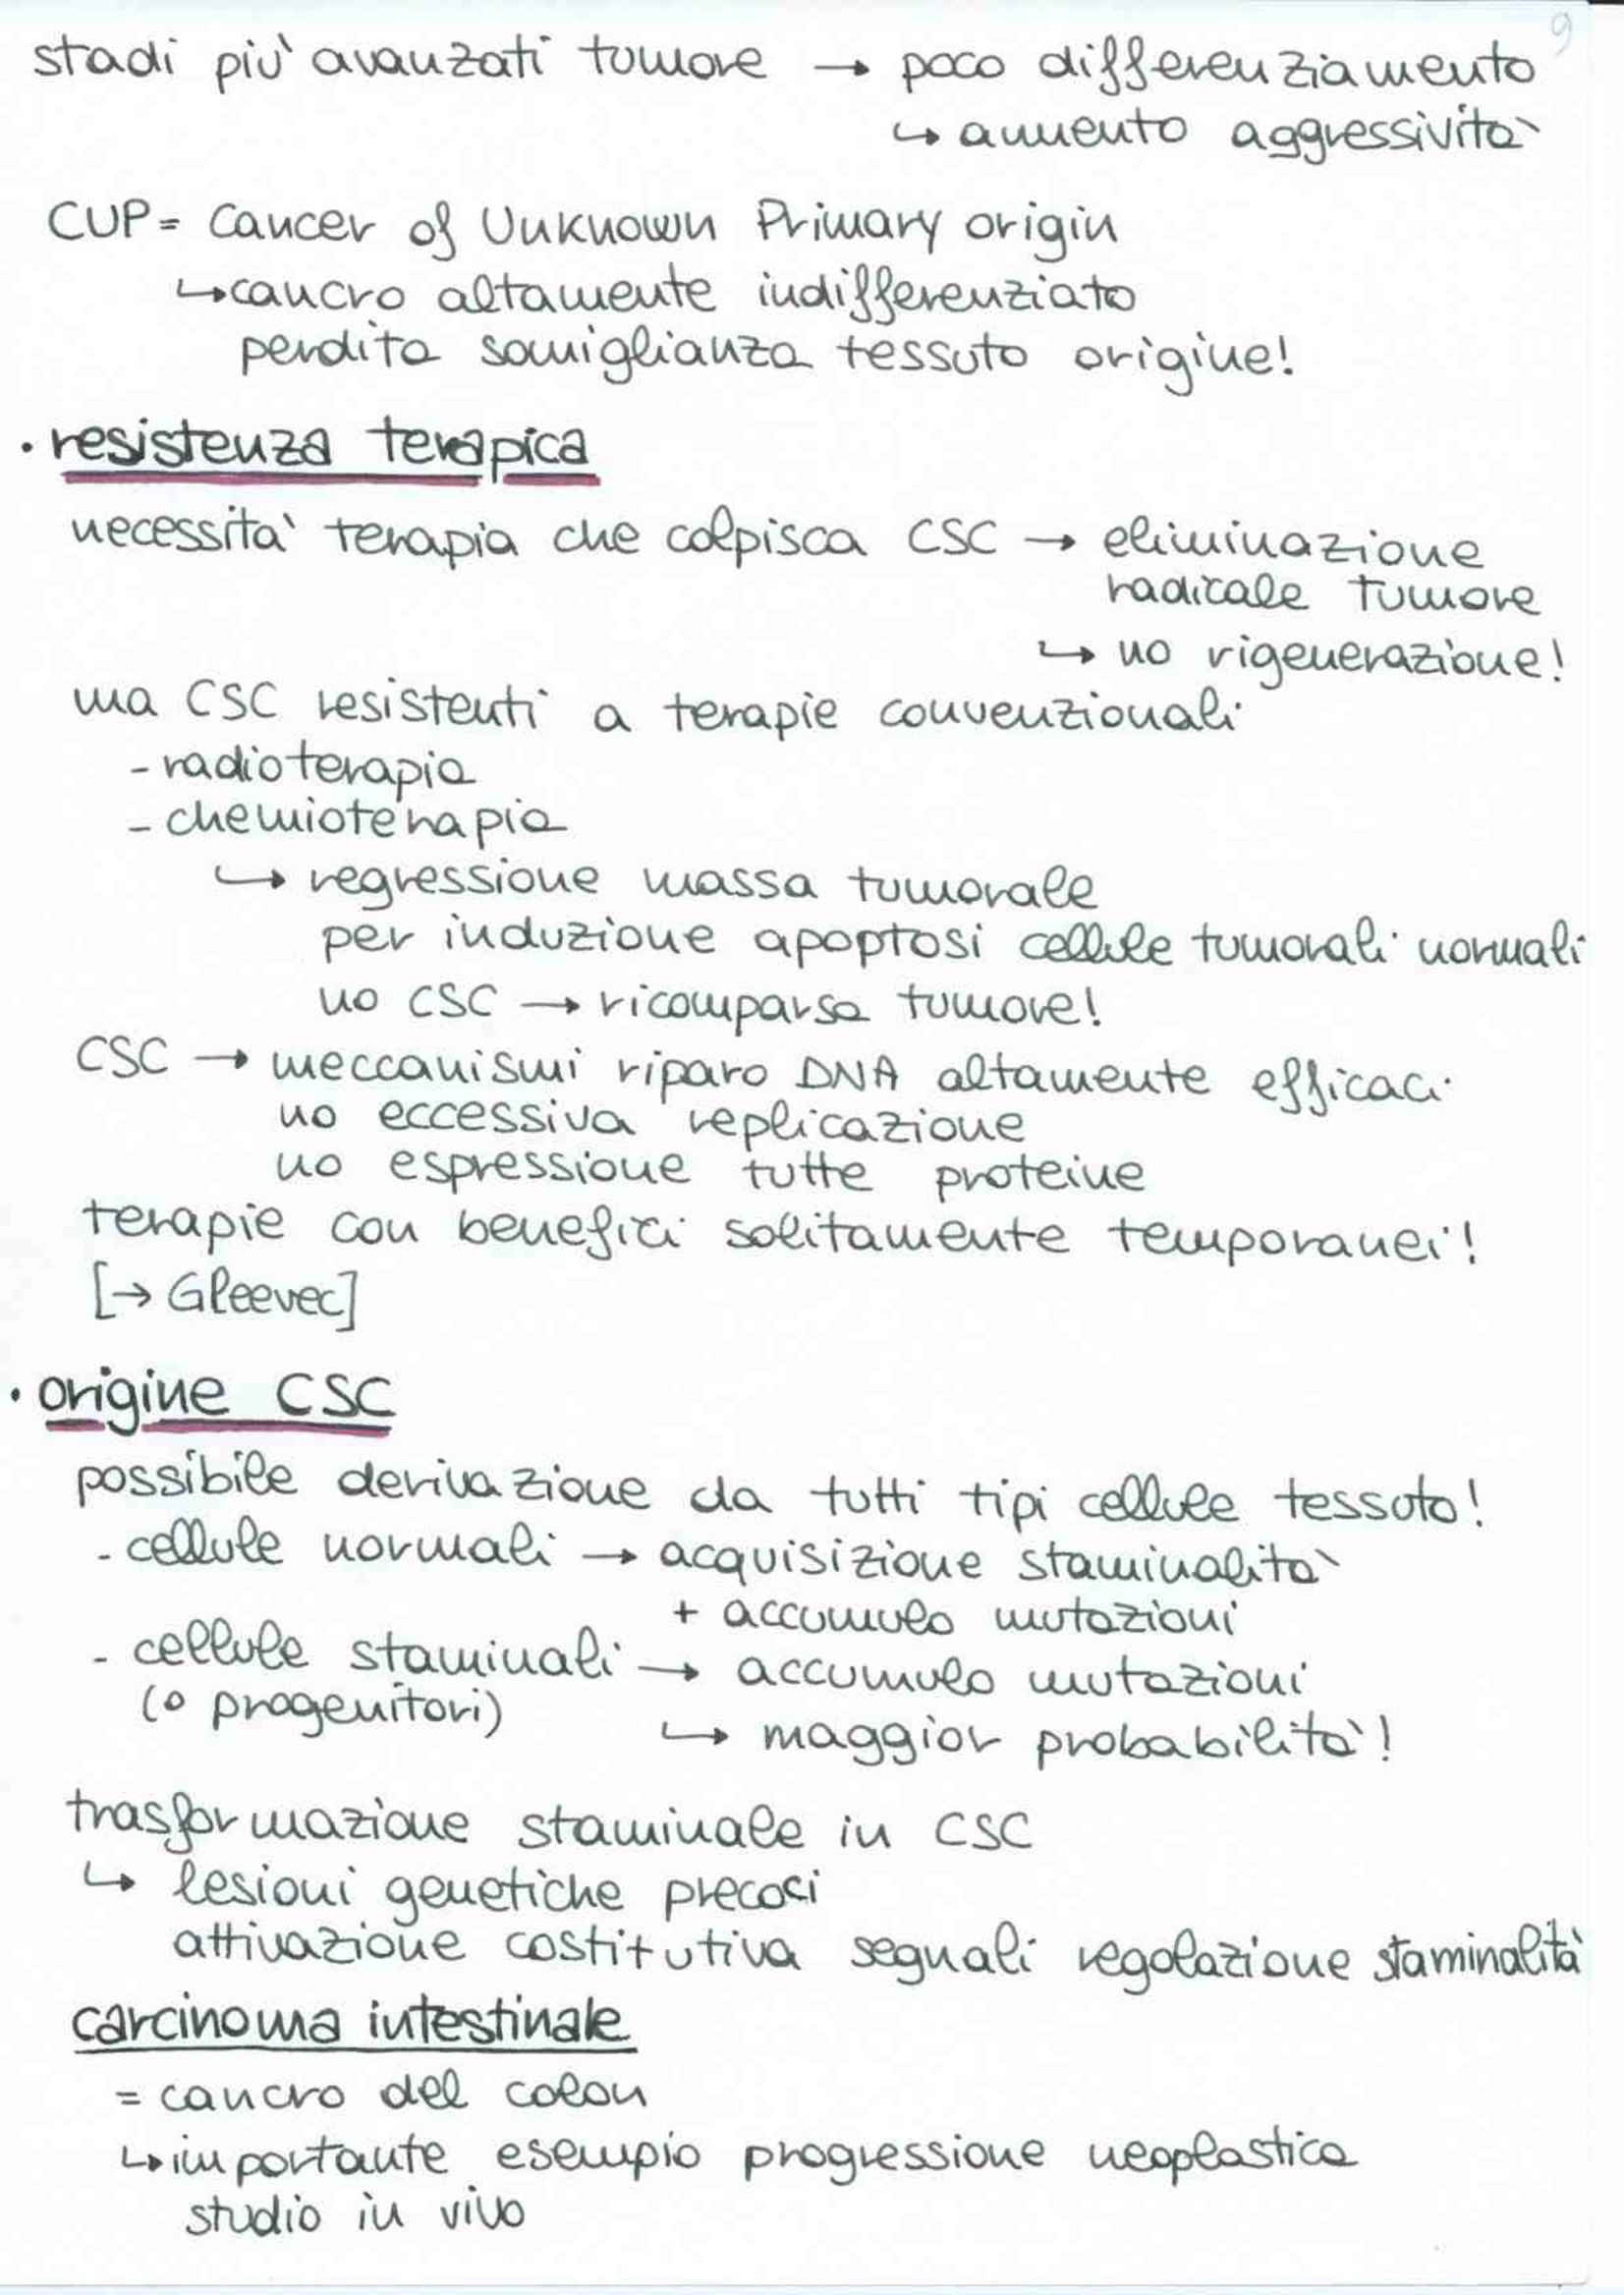 9
stadi più avanzati tumore → poco differenziamento
↳ aumento aggressività
CUP = Cancer of Unknown Primary origin
↳ cancro altamente indifferenziato
perdita somiglianza tessuto origine!
• resistenza terapica
necessità terapia che colpisca CSC → eliminazione
radicale tumore
↳ no rigenerazione!
ma CSC resistenti a terapie convenzionali
- radioterapia
- chemioterapia
↳ regressione massa tumorale
per induzione apoptosi cellule tumorali normali
no CSC → ricomparsa tumore!
CSC → meccanismi riparo DNA altamente efficaci
no eccessiva replicazione
no espressione tutte proteine
terapie con benefici solitamente temporanei!
[→ Gleevec]
• origine CSC
possibile derivazione da tutti tipi cellule tessuto!
- cellule normali → acquisizione staminalità
+ accumulo mutazioni
- cellule staminali → accumulo mutazioni
(o progenitori) ↳ maggior probabilità!
trasformazione staminale in CSC
↳ lesioni genetiche precoci
attivazione costitutiva segnali regolazione staminalità
carcinoma intestinale
= cancro del colon
↳ importante esempio progressione neoplastica
studio in vivo